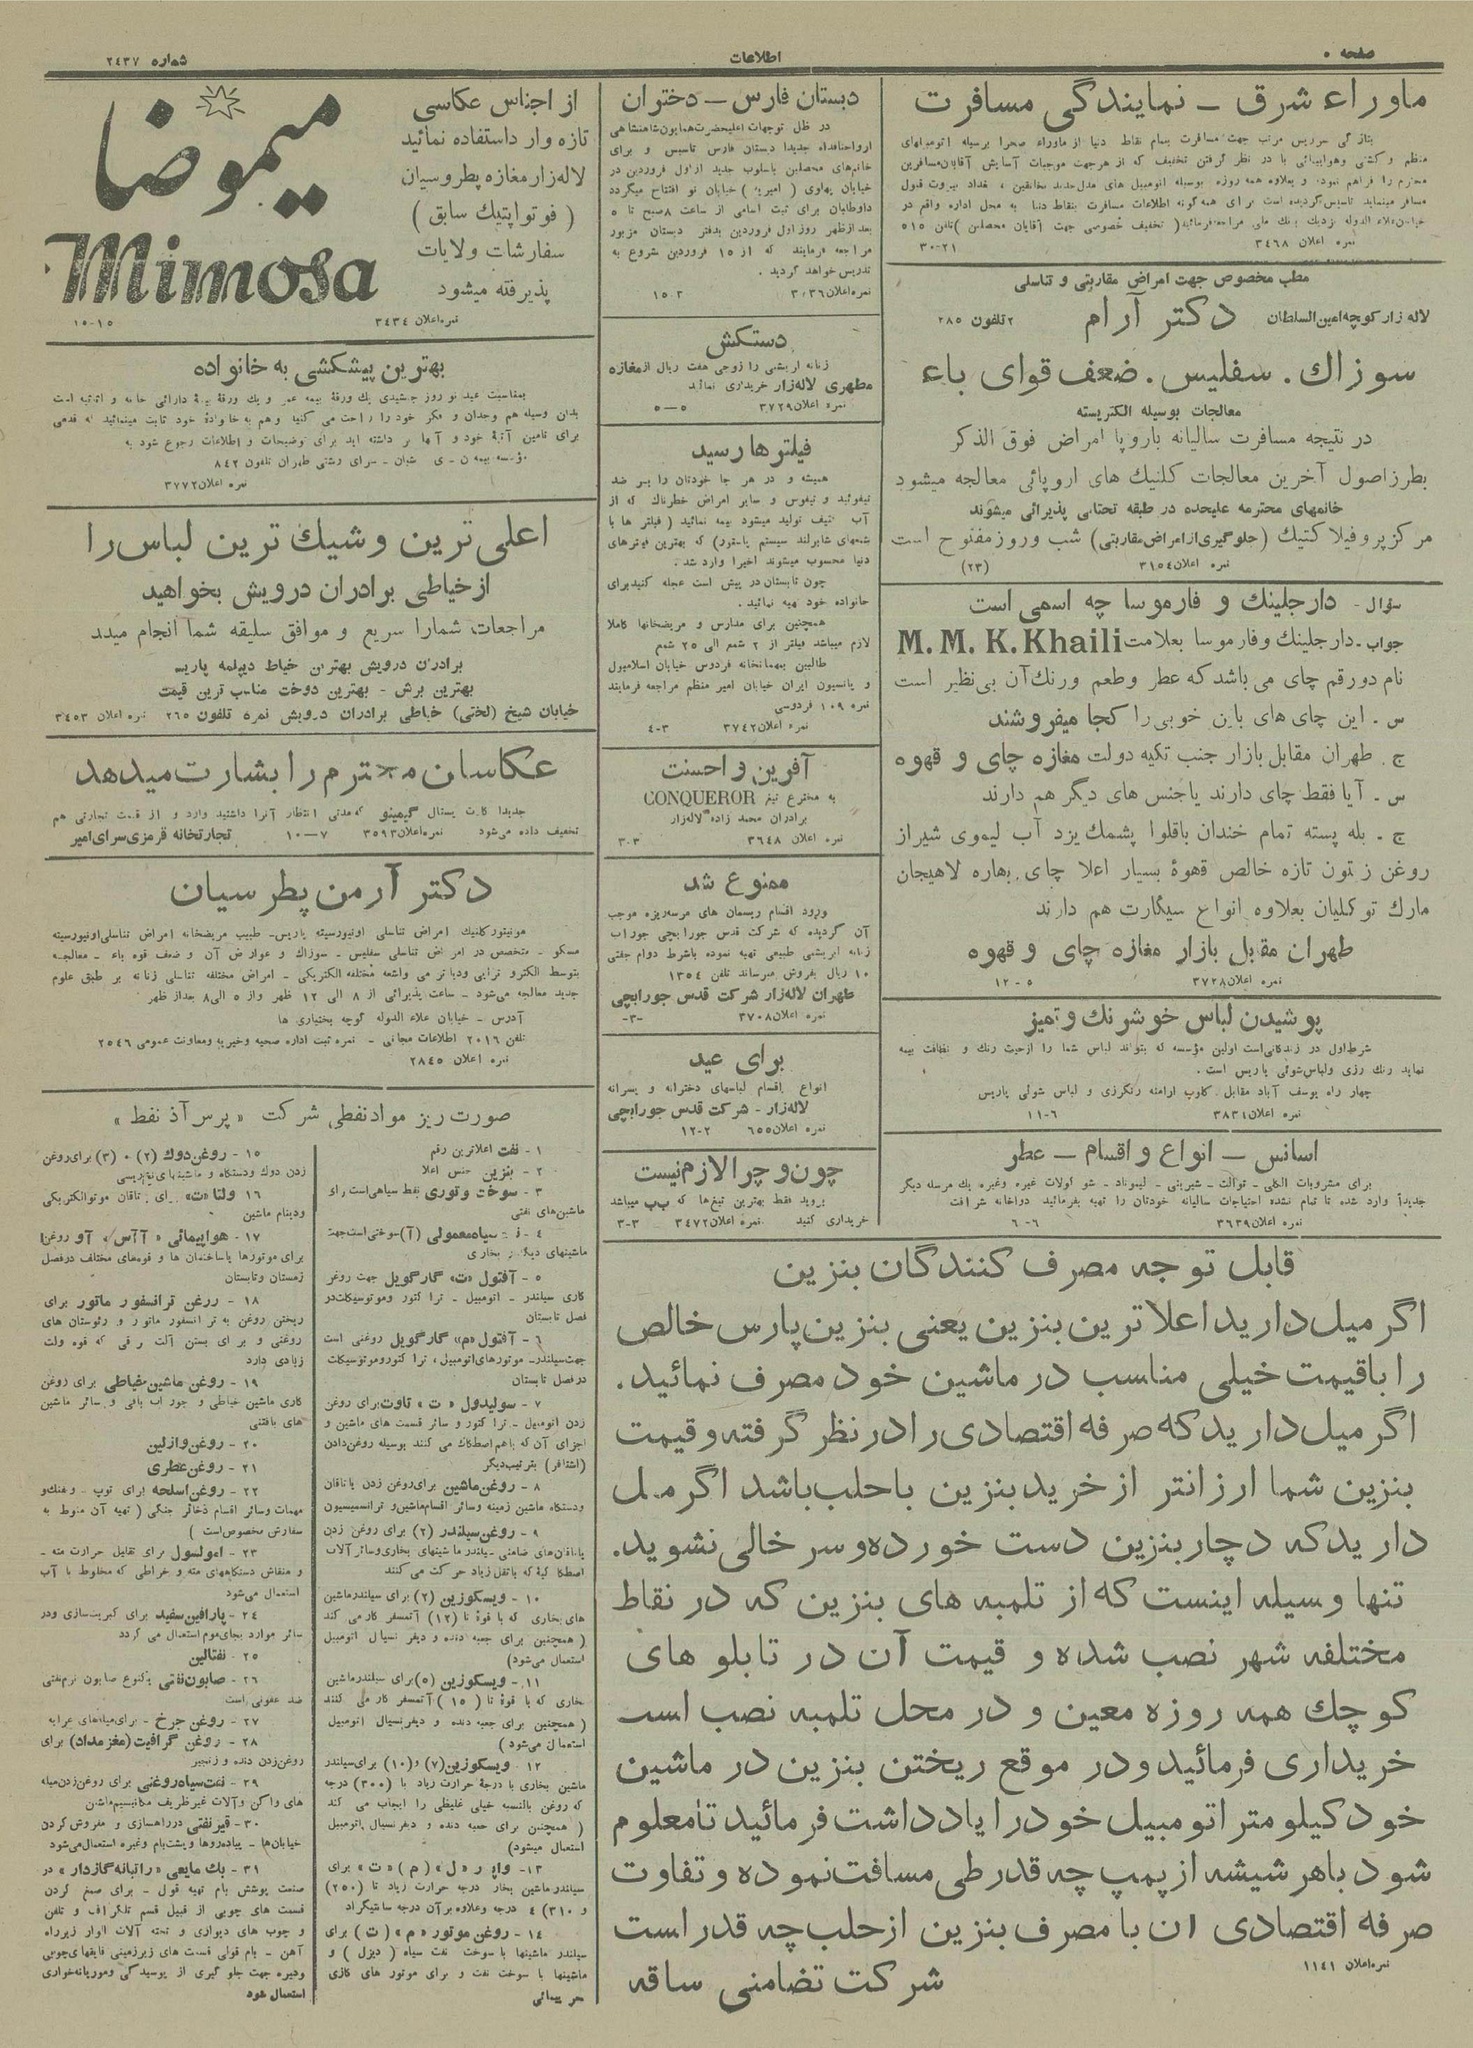 صفحه
اطلاعات
شماره ۲۴۳۷
ماوراء شرق - نمایندگی مسافرت
بتازگی سرویس مرتب جهت مسافرت بتمام نقاط دنیا از ماوراء صحرا بوسیله اتومبیلهای
منظم و کشتی وهواپیمائی با در نظر گرفتن تخفیف که از هرجهت موجبات آسایش آقایان مسافرین
محترم را فراهم نموده و بعلاوه همه روزه بوسیله اتومبیل های مدل جدید بخانقین ، بغداد بیروت قبول
مسافر مینماید تاسیس گردیده است برای همه گونه اطلاعات مسافرت بنقاط دنیا به محل اداره واقم در
خیابان علاء الدوله نزدیك بانك ملی مراجعه فرمائید ( تخفیف خصوصی جهت آقایان محصلین ) تلفن ۵۱۵
نمره اعلان ۳۴۶۸ ۲۱-۳۰
مطب مخصوص جهت امراض مقاربتی و تناسلی
لاله زار کوچه امین السلطان دکتر آرام ۲ تلفون ۲۸۵
سوزاك . سفلیس . ضعف قوای باء
معالجات بوسیله الکتریسته
در نتیجه مسافرت سالیانه باروپا امراض فوق الذکر
بطرز اصول آخرین معالجات کلنیك های اروپائی معالجه میشود
خانمهای محترمه علیحده در طبقه تحتانی پذیرائی میشوند
مرکز پروفیلاکتیك (جلوگیری از امراض مقاربتی) شب و روز مفتوح است
نمره اعلان ۳۱۵۴ (۲۳)
سؤال - دارجلینك و فارموسا چه اسمی است
جواب - دارجلینك وفارموسا بعلامت M. M. K. Khaili
نام دورقم چای می باشد که عطر وطعم ورنك آن بی نظیر است
س . این چای های باین خوبی را کجا میفروشند
ج . طهران مقابل بازار جنب تکیه دولت مغازه چای و قهوه
س . آیا فقط چای دارند یا جنس های دیگر هم دارند
ج . بله پسته تمام خندان باقلوا پشمك یزد آب لیموی شیراز
روغن زیتون تازه خالص قهوهٔ بسیار اعلا چای بهاره لاهیجان
مارك توکلیان بعلاوه انواع سیگارت هم دارند
طهران مقبل بازار مغازه چای و قهوه
نمره اعلان ۳۷۲۸ ۵ - ۱۲
پوشیدن لباس خوشرنك و تمیز
شرط اول در زندگانی است اولین مؤسسه که بتواند لباس شما را از حیث رنك و نظافت بیمه
نماید رنك رزی ولباس شوئی پاریس است .
چهار راه یوسف آباد مقابل کلوپ ارامنه رنگرزی و لباس شوئی پاریس
نمره اعلان ۳۸۳۱ ۶-۱۱
اسانس - انواع و اقسام - عطر
برای مشروبات الکلی - توالت - شیرینی - لیموناد - شوکولات غیره وغیره یك مرسله دیگر
جدیداً وارد شده تا تمام نشده احتیاجات سالیانه خودتان را تهیه بفرمائید دواخانه شرافت
نمره اعلان ۳۶۳۹ ۶-۶
دبستان فارس - دختران
در ظل توجهات اعلیحضرت همایون شاهنشاهی
ارواحنافداه جدیداً دبستان فارس تاسیس و برای
خانم‌های محصلین باسلوب جدید از اول فروردین در
خیابان پهلوی ( امیریه ) خیابان نو افتتاح میگردد
داوطلبان برای ثبت اسامی از ساعت ۸ صبح تا ۵
بعد از ظهر روز اول فروردین بدفتر دبستان مزبور
مراجعه فرمایند که از ۱۵ فروردین شروع به
تدریس خواهد گردید .
دستکش
زنانه ابریشمی را زوجی هفت ریال از مغازه
مطهری لاله‌زار خریداری نمائید
نمره اعلان ۳۷۲۹ ۵-۵
فیلترها رسید
همیشه و در هر جا خودتان را بر ضد
تیفوئید و تیفوس و سایر امراض خطرناك که از
آب کثیف تولید میشود بیمه نمائید ( فیلتر ها با
شمعهای شامبرلند سیستم پاستور) که بهترین فیلترهای
دنیا محسوب میشوند اخیرا وارد شد .
چون تابستان در پیش است عجله کنید برای
خانواده خود تهیه نمائید .
همچنین برای مدارس و مریضخانها کاملا
لازم میباشد فیلتر از ۲ شمع الی ۲۵ شمع
طالبین بمهمانخانه فردوس خیابان اسلامبول
و پانسیون ایران خیابان امیر منظم مراجعه فرمایند
نمره ۱۰۹ فردوسی
نمره اعلان ۳۷۴۲ ۳-۴
آفرین و احسنت
به مخترع تیغ CONQUEROR
برادران محمد زاده لاله‌زار
نمره اعلان ۳۶۴۸ ۳-۳
ممنوع شد
ورود اقسام ریسمان های مرسه‌ریزه موجب
آن گردیده که شرکت قدس جورابچی جوراب
زنانه ابریشمی طبیعی تهیه نموده باشرط دوام جفتی
۱۰ ریال بفروش میرساند تلفن ۱۳۵۴
طهران لاله‌زار شرکت قدس جورابچی
نمره اعلان ۳۷۰۸
برای عید
انواع اقسام لباسهای دخترانه و پسرانه
لاله‌زار - شرکت قدس جورابچی
نمره اعلان ۶۵۵ ۲-۱۲
چون و چرا لازم نیست
بروید فقط بهترین تیغ‌ها که پ‌پ میباشد
خریداری کنید نمره اعلان ۳۴۷۲ ۳-۳
قابل توجه مصرف کنندگان بنزین
اگر میل دارید اعلا ترین بنزین یعنی بنزین پارس خالص
را باقیمت خیلی مناسب در ماشین خود مصرف نمائید .
اگر میل دارید که صرفه اقتصادی را در نظر گرفته و قیمت
بنزین شما ارزانتر از خرید بنزین با حلب باشد اگر میل
دارید که دچار بنزین دست خورده و سر خالی نشوید .
تنها وسیله اینست که از تلمبه های بنزین که در نقاط
مختلفه شهر نصب شده و قیمت آن در تابلو های
کوچك همه روزه معین و در محل تلمبه نصب است
خریداری فرمائید و در موقع ریختن بنزین در ماشین
خود کیلو متر اتومبیل خود را یادداشت فرمائید تا معلوم
شود با هر شیشه از پمپ چه قدر طی مسافت نموده و تفاوت
صرفه اقتصادی ان با مصرف بنزین از حلب چه قدر است
شرکت تضامنی ساقه
نمره اعلان ۱۱۴۱
میموضا
Mimosa
از اجناس عکاسی
تازه وارد استفاده نمائید
لاله زار مغازه پطروسیان
( فوتو اپتیك سابق )
سفارشات ولایات
پذیرفته میشود
نمره اعلان ۳۴۳۴ ۱۵-۱۵
بهترین پیشکشی به خانواده
بمناسبت عید نوروز جمشیدی یك ورقهٔ بیمه عمر و یك ورقهٔ بیمهٔ دارائی خانه و اثاثیه است
بدان وسیله هم وجدان و فکر خود را راحت می کنید وهم به خانوادهٔ خود ثابت مینمائید که قدمی
برای تامین آتیهٔ خود و آنها بر داشته اید برای توضیحات و اطلاعات رجوع شود به
سرای رشتی طهران تلفون ۸۴۲
نمره اعلان ۳۷۷۲
اعلی ترین و شیك ترین لباس را
از خیاطی برادران درویش بخواهید
مراجعات شما را سریع و موافق سلیقه شما انجام میدد
برادران درویش بهترین خیاط دیپلمه پاریس
بهترین برش - بهترین دوخت مناسب ترین قیمت
خیابان شیخ (لختی) خیاطی برادران درویش نمره تلفون ۲۶۵ نمره اعلان ۳۴۵۳
عکاسان محترم را بشارت میدهد
جدیدا کارت پستال گیمینو که مدتی انتظار آنرا داشتید وارد و از قیمت تجارتی هم
تخفیف داده می‌شود نمره اعلان ۳۵۹۳ ۷-۱۰ تجارتخانه قرمزی سرای امیر
دکتر آرمن پطرسیان
مونیتورکلنیك امراض تناسلی اونیورسیته پاریس - طبیب مریضخانه امراض تناسلی اونیورسیته
مسکو - متخصص در امراض تناسلی سفلیس - سوزاك و عوارض آن و ضعف قوه باء - معالجه
بتوسط الکترو تراپی ودیاترمی واشعه مختلفه الکتریکی - امراض مختلفه تناسلی زنانه بر طبق علوم
جدید معالجه می‌شود - ساعت پذیرائی از ۸ الی ۱۲ ظهر واز ۵ الی ۸ بعد از ظهر
آدرس - خیابان علاء الدوله کوچه بختیاری ها
تلفن ۲۰۱۶ اطلاعات مجانی - نمره ثبت اداره صحیه وخیریه ومعاونت عمومی ۲۵۴۶
نمره اعلان ۲۸۴۵
صورت ریز مواد نفطی شرکت « پرس آذ نفط »
۱ - نفت اعلاترین رقم
۲ - بنزین جنس اعلا
۳ - سوخت وتوری نفط سیاهی است برای
ماشین‌های نفتی
۴ - نفت سیاه معمولی (آ) سوختی است جهت
ماشینهای دیگر بخاری
۵ - آفتول «ت» گارگویل جهت روغن
کاری سیلندر - اتومبیل - تراکتور وموتوسیکلت در
فصل تابستان
۶ - آفتول «م» گارگویل روغنی است
جهت سیلندر - موتورهای اتومبیل ، تراکتور وموتوسیکلت
در فصل تابستان
۷ - سولیدول « ت » تاوت برای روغن
زدن اتومبیل - تراکتور و سائر قسمت های ماشین و
اجزای آن که باهم اصطکاك می کنند بوسیله روغن دادن
(اشتافر) بترتیب دیگر
۸ - روغن ماشین برای روغن زدن یاتاقان
ودستگاه ماشین زمینه وسائر اقسام ماشین و ترانسمیسیون
۹ - روغن سیلندر (۲) برای روغن زدن
یاتاقان‌های ضامنی - سیلندر ماشینهای بخاری وسائر آلات
اصطکاکیه که باثقل زیاد حرکت می‌کنند
۱۰ - ویسکوزین (۲) برای سیلندر ماشین
های بخاری که با قوهٔ تا (۱۲) آتمسفر کار می کند
( همچنین برای جعبه دنده و دیفرنسیال اتومبیل
استعمال می‌شود)
۱۱ - ویسکوزین (۵) برای سیلندر ماشین
بخاری که با قوهٔ تا ( ۱۵ ) آتمسفر کار می کنند
( همچنین برای جعبه دنده و دیفرنسیال اتومبیل
استعمال می‌شود )
۱۲ - ویسکوزین (۷) و (۱۰) برای سیلندر
ماشین بخاری با درجهٔ حرارت زیاد با (۳۰۰) درجه
که روغن بالنسبه خیلی غلیظی را ایجاب می کند
( همچنین برای جعبه دنده و دیفرنسیال اتومبیل
استعمال میشود)
۱۳ - واپر «ل» ( م ) «ت» برای
سیلندر ماشین بخار درجه حرارت زیاد تا (۲۵۰)
و ۳۱۰) درجه وعلاوه برآن درجه سانتیگراد
۱۴ - روغن موتور «م» (ت) برای
سیلندر ماشینها با سوخت نفت سیاه (دیزل) و
ماشینها با سوخت نفت و برای موتور های گازی
بحر پیمائی
۱۵ - روغن دوك (۲) ، (۳) برای روغن
زدن دوك ودستگاه و ماشینهای نخ‌ریسی
۱۶ - ولتا «ت» برای یاتاقان موتور الکتریکی
ودینام ماشین
۱۷ - هواپیمائی « آ آس » آو روغن
برای موتورها باساختمان ها و قوه‌های مختلف در فصل
زمستان وتابستان
۱۸ - روغن ترانسفورماتور برای
ریختن روغن به ترانسفورماتور و رئوستان های
روغنی و برای بستن آلت برقی که قوه ولت
زیادی دارد
۱۹ - روغن ماشین خیاطی برای روغن
کاری ماشین خیاطی و جوراب بافی و سائر ماشین
های بافتنی
۲۰ - روغن وازلین
۲۱ - روغن عطری
۲۲ - روغن اسلحه برای توپ - وفنك و
مهمات وسائر اقسام ذخائر جنگی ( تهیه آن منوط به
سفارش مخصوص است )
۲۳ - امولسول برای تقلیل حرارت مته -
و منقاش دستگاههای مته و خراطی که مخلوط با آب
استعمال می‌شود
۲۴ - پارافین سفید برای کبریت سازی ودر
سائر موارد بجای موم استعمال می گردد
۲۵ - نفتالین
۲۶ - صابون نفتی یکنوع صابون نرم نفتی
ضد عفونی است
۲۷ - روغن چرخ - برای میله‌های عرابه
۲۸ - روغن گرافیت (مغز مداد) برای
روغن زدن دنده و زنجیر
۲۹ - نفت سیاه روغنی برای روغن زدن میله
های واگن و آلات غیر ظریف مکانیسم ماشن
۳۰ - قیر نفتی در راهسازی و مفروش کردن
خیابان‌ها - پیاده‌روها و پشت‌بام وغیره استعمال می‌شود
۳۱ - بك مایعی «راتبانه گازدار» در
صنعت پوشش بام تهیه قول - برای صمغ کردن
قسمت های چوبی از قبیل قسم تلگراف و تلفن
و چوب های دیواری و تخته آلات الوار زیر راه
آهن - بام قولی قسمت های زیرزمینی قایقهای چوبی
وغیره جهت جلو گیری از پوسیدگی و موریانه خواری
استعمال شود